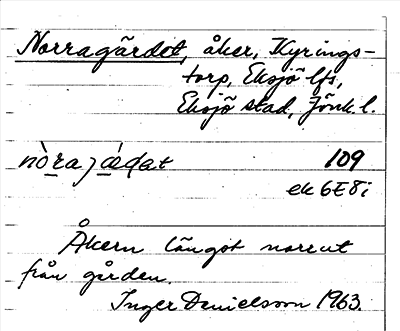 Norragärdet, åker, Kyrings-
torp, Eksjö lfs,
Eksjö stad, Jönk. l.
nòra jǽdat 109
ek 6E8i
Åkern längst norrut
från gården.
Inger Danielsson 1963.